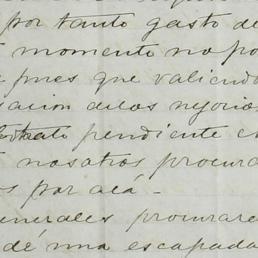 por tanto gasto de
momento no po
pues que valiendo
sación de los negocios
pendiente e
nosotros procura
os por acá -
generales procurare
dé una escapada